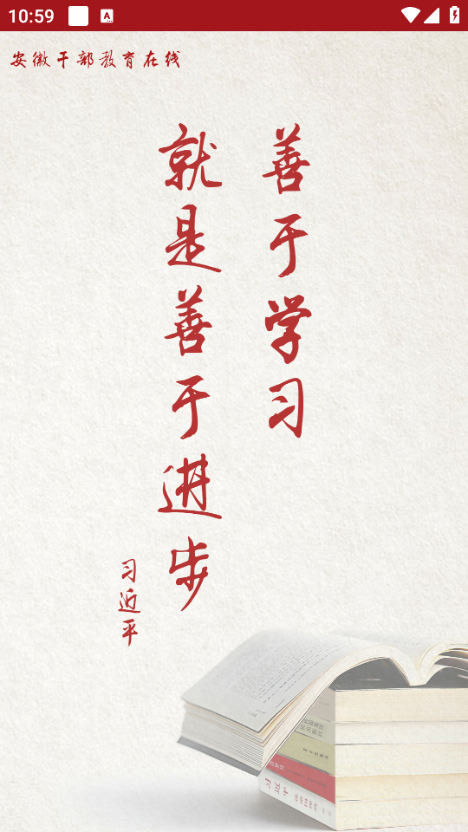 10:59
安徽干部教育在线
善于学习
就是善于进步
习近平
习近平